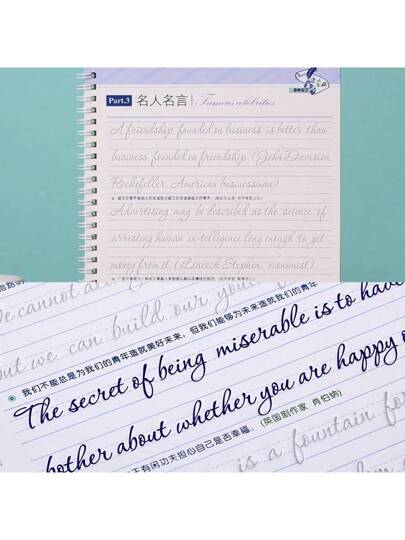 Part.3 名人名言 Famous celebrities
A friendship founded on business is better than
business founded on friendship. (John Davision
Rockefeller, American businessman)
Advertising may be described as the science of
arresting human in-telligence long enough to get
money from it. (Leacock Stephen, economist)
We cannot al
but we can build our you
我们不能总是为我们的青年造就美好未来，但我们能够为未来造就我们的青年
The secret of being miserable is to have
bother about whether you are happy o
有闲功夫担心自己是否幸福。(英国剧作家 肖伯纳)
is a fountain fo